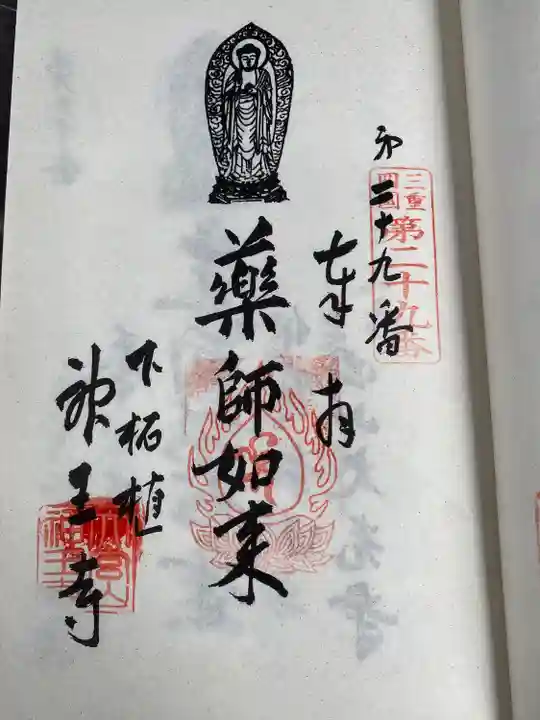 第二十九番
三重
四国
第二十九番
奉拝
薬師如来
下柘植
神王寺